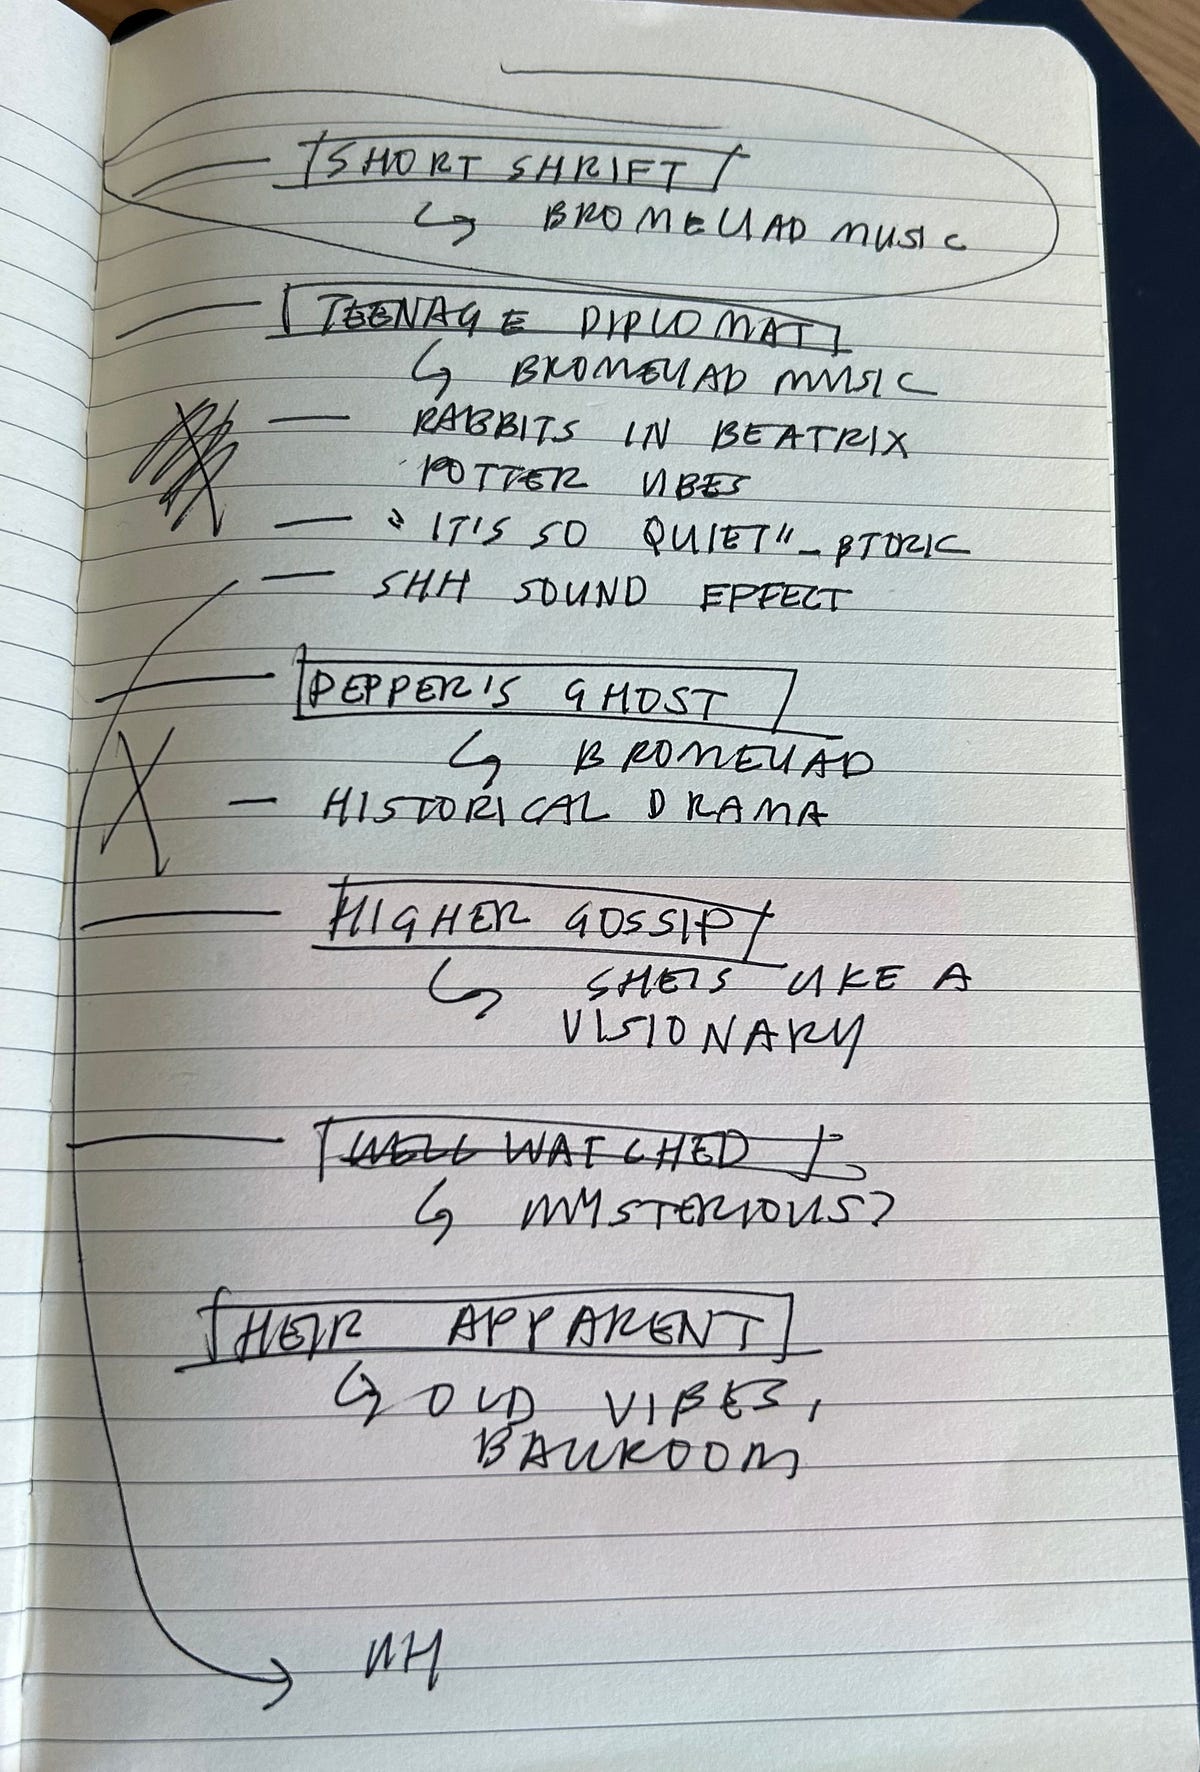 SHORT SHRIFT
↳ BROMELIAD MUSIC
TEENAGE DIPLOMAT
↳ BROMELIAD MUSIC
— RABBITS IN BEATRIX
POTTER VIBES
— "IT'S SO QUIET" – BJORK
— SHH SOUND EFFECT
PEPPER'S GHOST
↳ BROMELIAD
— HISTORICAL DRAMA
HIGHER GOSSIP
↳ SHE IS LIKE A
VISIONARY
WELL WATCHED
↳ MYSTERIOUS?
HEIR APPARENT
↳ OLD VIBES,
BALLROOM